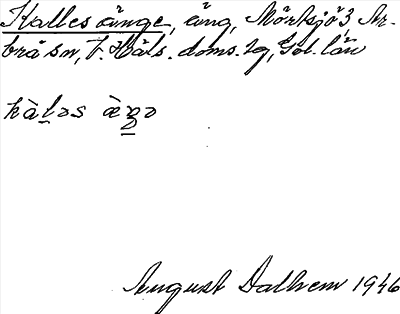 Kalles änge, äng, Mörtsjö 3 Ar-
brå sn, V. Häls. doms. lg, Gvl. län
kàləs æ̀ŋə
August Dalhem 1946